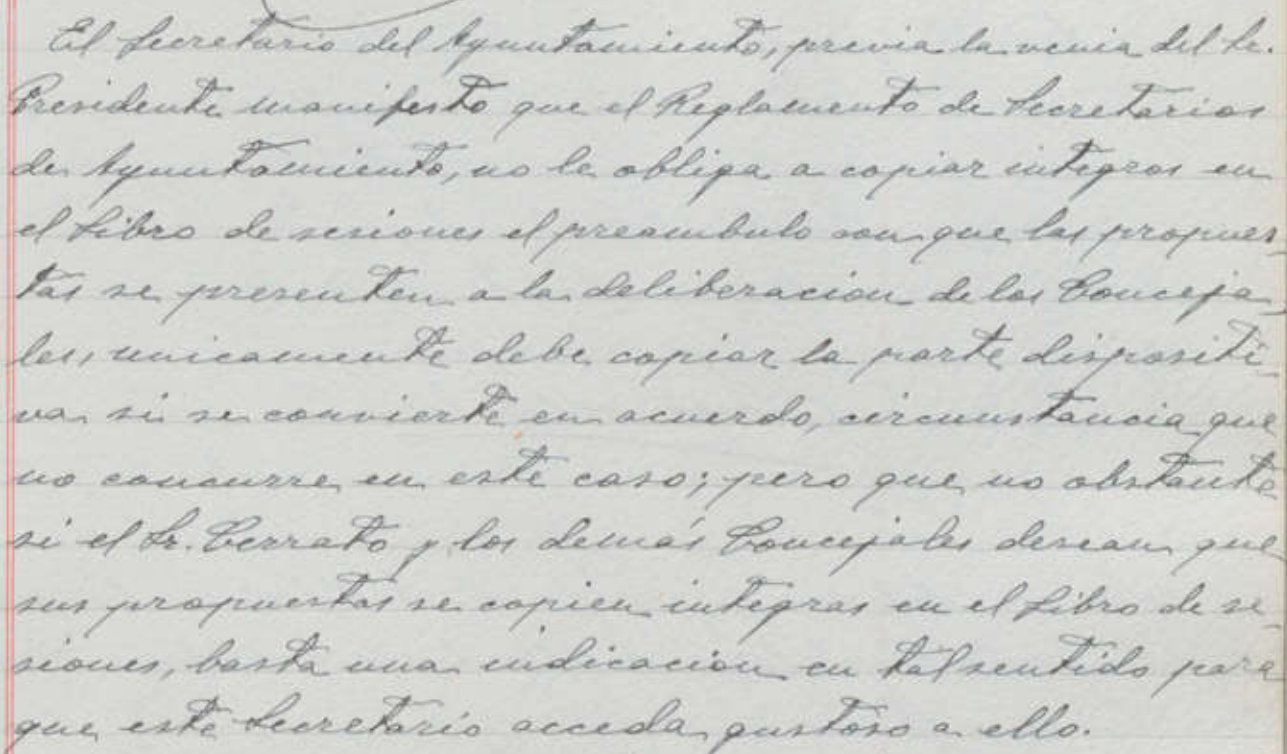 El Secretario del Ayuntamiento, previa la venia del Sr.
Presidente manifesto que el Reglamento de Secretarios
de Ayuntamiento, no le obliga a copiar integros en
el Libro de sesiones el preambulo con que las propues-
tas se presenten a la deliberacion de los Conceja-
les, unicamente debe copiar la parte dispositi-
va si se convierte en acuerdo, circunstancia que
no concurre en este caso; pero que no obstante
si el Sr. Cerrato y los demás Concejales desean que
sus propuestas se copien integras en el Libro de se-
siones, basta una indicacion en tal sentido para
que este Secretario acceda gustoso a ello.